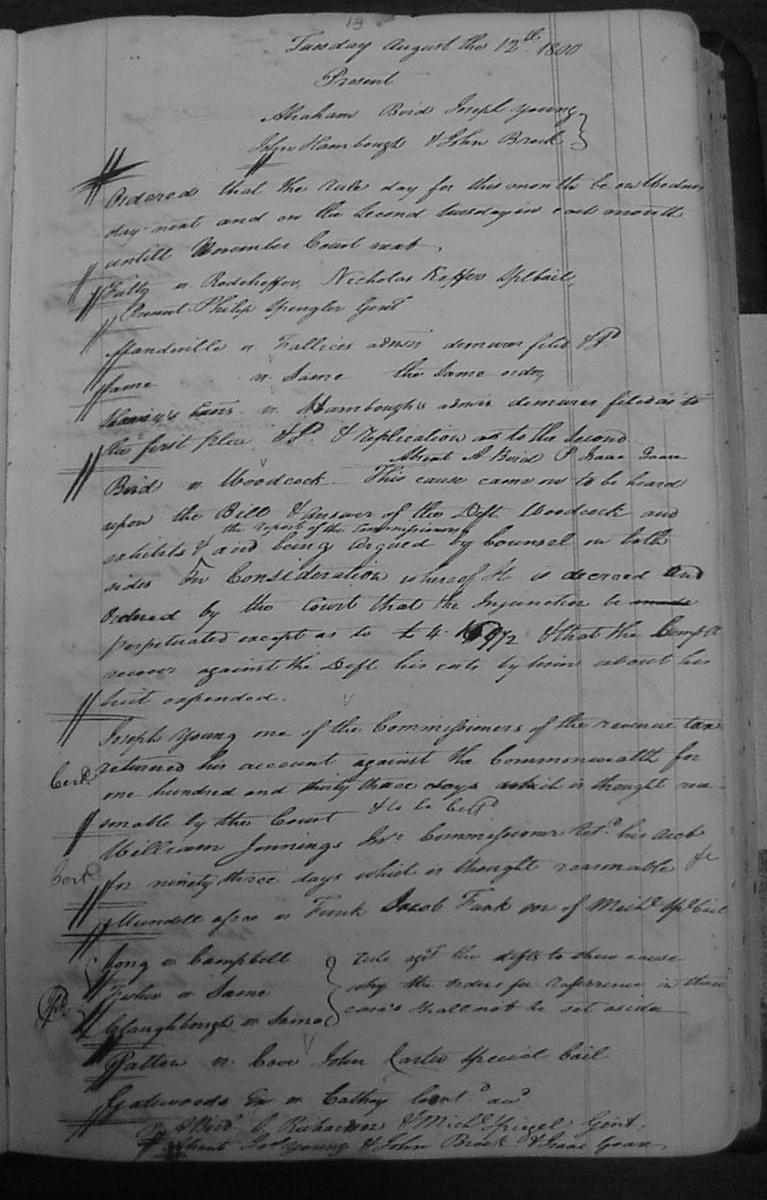 13
Tuesday August the 12th 1800
Present
Abraham Bird Joseph Young
John Hambough & John Brock
Ordered that the rule day for this month be on Wednes
day next and on the second tuesday in each month
untill November Court next.
Fultz vs Rodeheffer, Nicholas Keffer Spl bail,
Present Philip Spengler Gent
Mandeville vs Fallices admr demurer filed & J.
Same vs Same the same order
vs Hambough's admr demurer filed as to
the first plea & J. & replication as to the second
Absent A Bird P Isaac
Bird vs Woodcock This cause came on to be heard
upon the Bill & answer of the Deft Woodcock and
the report of the Commissioners
exhibits & and being argued by Counsel on both
sides In Consideration whereof It is decreed and
Ordered by the Court that the Injunction be made
perpetuated except as to £ 4. & that the Complt
recover against the Deft his costs by him about his
suit expended.
Joseph Young one of the Commissioners of the revenue tax
returned his account against the Commonwealth for
Cert
one hundred and thirty three days which is thought rea-
sonable by the Court & to be Certd
William Jennings Jnr Commissioner retd his acct
Certd
for ninety three days which is thought reasonable &c
Mundell assee vs Funk Jacob Funk son of Michl Spl bail
Long vs Campbell rule agst the defts to shew cause
Fisher vs Same why the orders for reference in these
Claughbough vs Same cases shall not be set aside
Patton vs Cove John Carter Special bail
Gatewoods Exr vs Cathey Contd
P. A Bird J. & Michl Spiegel Gent.
Absent Jos Young & John Brock & Isaac